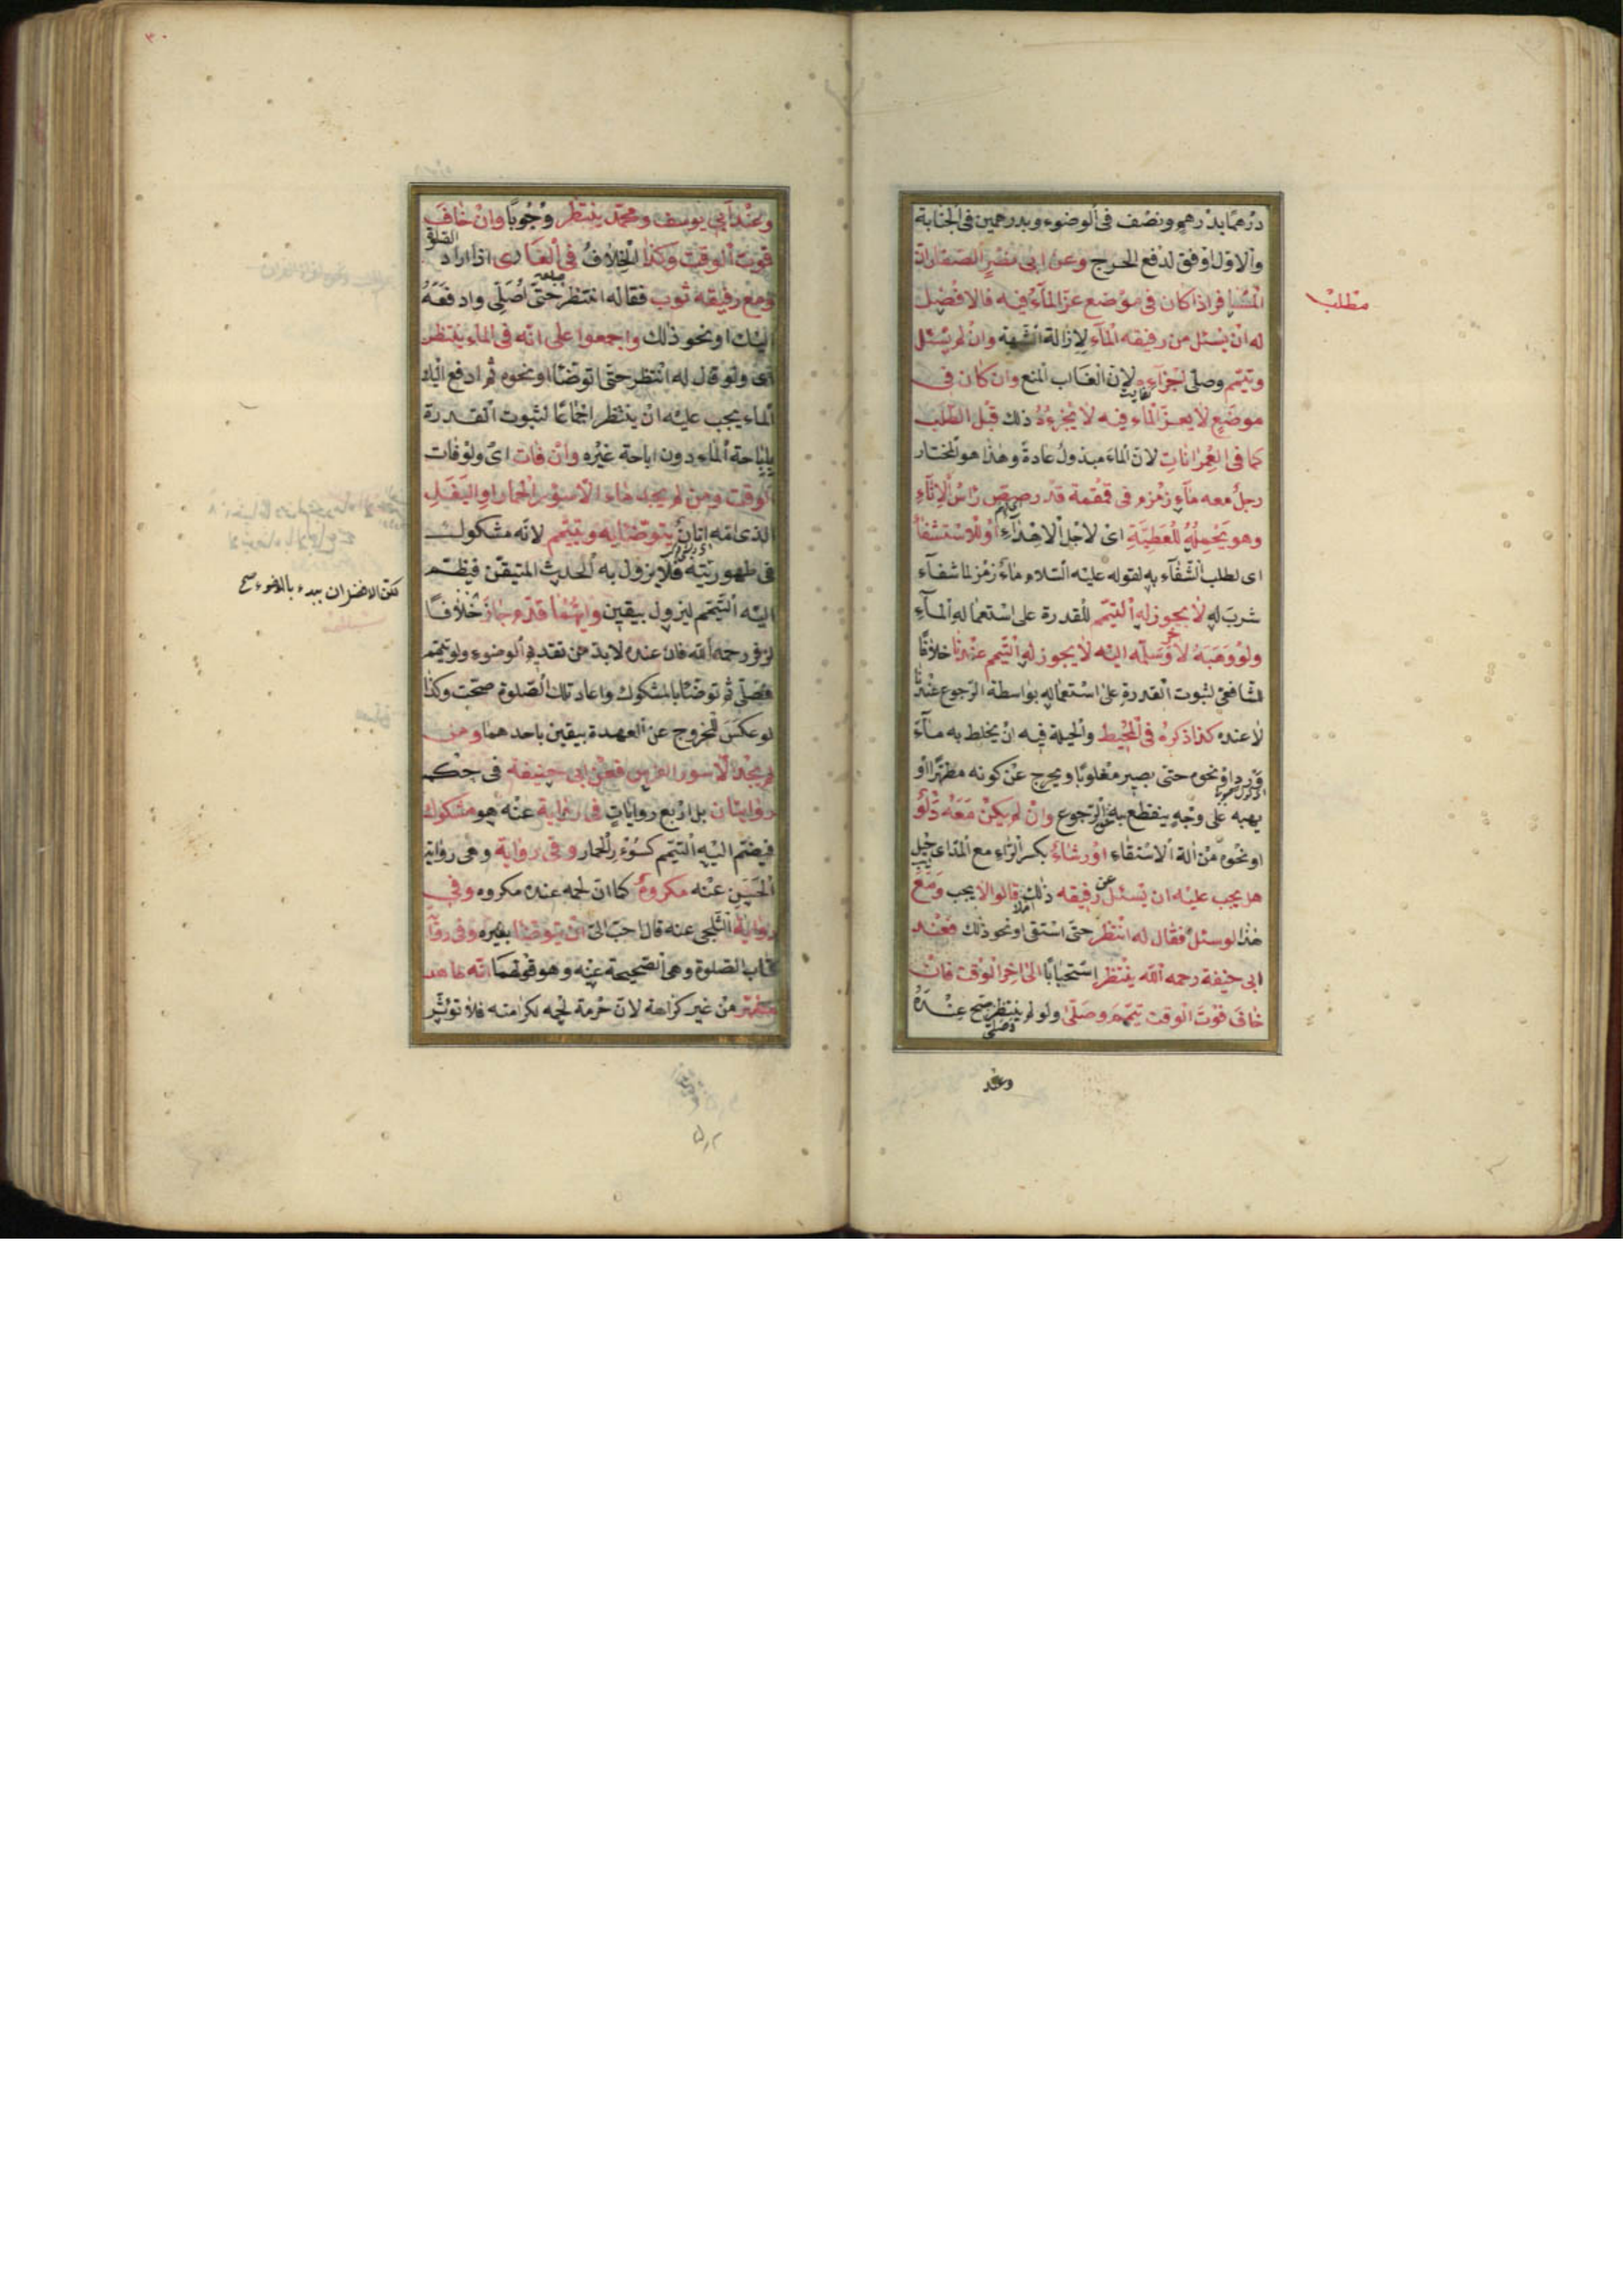 مطلب
درهما بدرهم ونصف في الوضوء وبدرهمين في الجنابة
والاول اوفق لدفع الحرج وعن ابي نصر الصفار ان
المسافر اذا كان في موضع عز الماء فيه فالافضل
له ان يسئل من رفيقه الماء لازالة الشبهة وان لم يسئل
وتيمم وصلى اجزاءه لان الغالب المنع وان كان في
موضع لا يعز الماء فيه لا يجزءه ذلك قبل الطلب
كما في العمرانات لان الماء مبذول عادة وهذا هو المختار
رجل معه ماء زمزم في قمقمة قد رصص راس الاناء
وهو يحمله للعطية اى لاجل الاهداء او للاستشفاء
اى لطلب الشفاء به لقوله عليه السلام ماء زمزم لما
شرب له لا يجوز له التيمم للقدرة على استعماله الماء
ولو وهبه لاخر وسلمه اليه لا يجوز له التيمم عندنا خلافا
للشافعي لثبوت القدرة على استعماله بواسطة الرجوع عندنا
لا عنده كذا ذكره في المحيط والحيلة فيه ان يخلط به ماء
ورد او نحوه حتى يصير مغلوبا ويخرج عن كونه مطهرا او
يهبه على وجه ينقطع به الرجوع وان لم يكن معه دلو
او نحوه من الة الاستقاء او رشاء بكسر الراء مع المد اى حبل
هل يجب عليه ان يسئل عن رفيقه ذلك قالوا لا يجب ومع
هذا لو سئل فقال له انتظر حتى استقى او نحو ذلك فعند
ابي حنيفة رحمه الله ينتظر استحبابا الى اخر الوقت فان
خاف فوت الوقت تيمم وصلى ولو لم ينتظر صح عنده
وعند
٣٠
وعند ابي يوسف ومحمد ينتظر وجوبا وان خاف
فوت الوقت وكذا الخلاف في العارى اذا اراد الصلوة
ومع رفيقه ثوب فقال له انتظر حتى اصلي وادفعه
اليك او نحو ذلك واجمعوا على انه في الماء ينتظر
اى ولو قال له انتظر حتى اتوضأ او نحوه ثم ادفع اليك
الماء يجب عليه ان ينتظر اجماعا لثبوت القدرة
باباحة الماء دون اباحة غيره وان فات اى ولو فات
الوقت ومن لم يجد ماء الا سور الحمار او البغل
الذى امه اتان يتوضأ به ويتيمم لانه مشكوك
في طهوريته فلا يزول به الحدث المتيقن فيضم
اليه التيمم ليزول بيقين وايهما قدم جاز خلافا
لزفر رحمه الله فان عنده لابد من تقديم الوضوء ولو تيمم
فصلى ثم توضأ بالمشكوك واعاد تلك الصلوة صحت وكذا
لو عكس للخروج عن العهدة بيقين باحدهما ومن
لم يجد الا سور الفرس فعن ابي حنيفة في حكمه
روايتان بل اربع روايات في رواية عنه هو مشكوك
فيضم اليه التيمم كسؤر الحمار وفي رواية وهى رواية
الحسن عنه مكروه كما ان لحمه عنده مكروه وفي
رواية الثلجي عنه قال احب الى ان يتوضأ بغيره وفي رواية
كتاب الصلوة وهى الصحيحة عنه وهو قولهما انه طاهر
مطهر من غير كراهة لان حرمة لحمه لكرامته فلا تؤثر
لكن الافضل ان يبدء بالوضوء صح